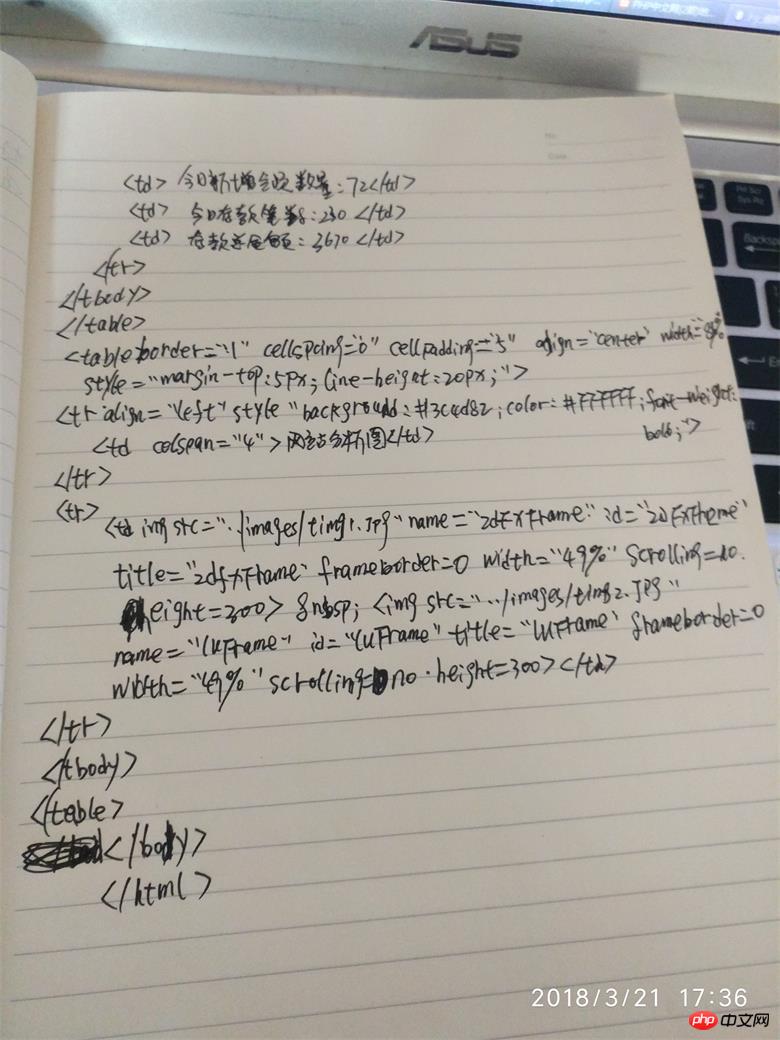 PHP中文网
ASUS
No.
Date
Prt Scr
Sys Rq
Backsp
<td> 今日新增会员数量:72</td>
<td> 今日存款笔数:230 </td>
<td> 存款总金额:3670 </td>
</tr>
</tbody>
</table>
<table border="1" cellspacing="0" cellpadding="5" align="center" width="
style="margin-top:5px; line-height:20px;">
<tr align="left" style "background:#3c4d82; color:#FFFFFF; font-weight:
bold;">
<td colspan="4">网站分析图</td>
</tr>
<tr>
<td img src="../images/timg1.jpg" name="zdfxFrame" id="zdfxFrame"
title="zdfxFrame" frameborder=0 width="49%" scrolling=no.
height=300> &nbsp; <img src="../images/timg2.jpg"
name="lkFrame" id="lkFrame" title="lkFrame" frameborder=0
width="49%" scrolling=no.height=300></td>
</tr>
</tbody>
</table>
</body>
</html>
2018/3/21 17:36
php 中文网